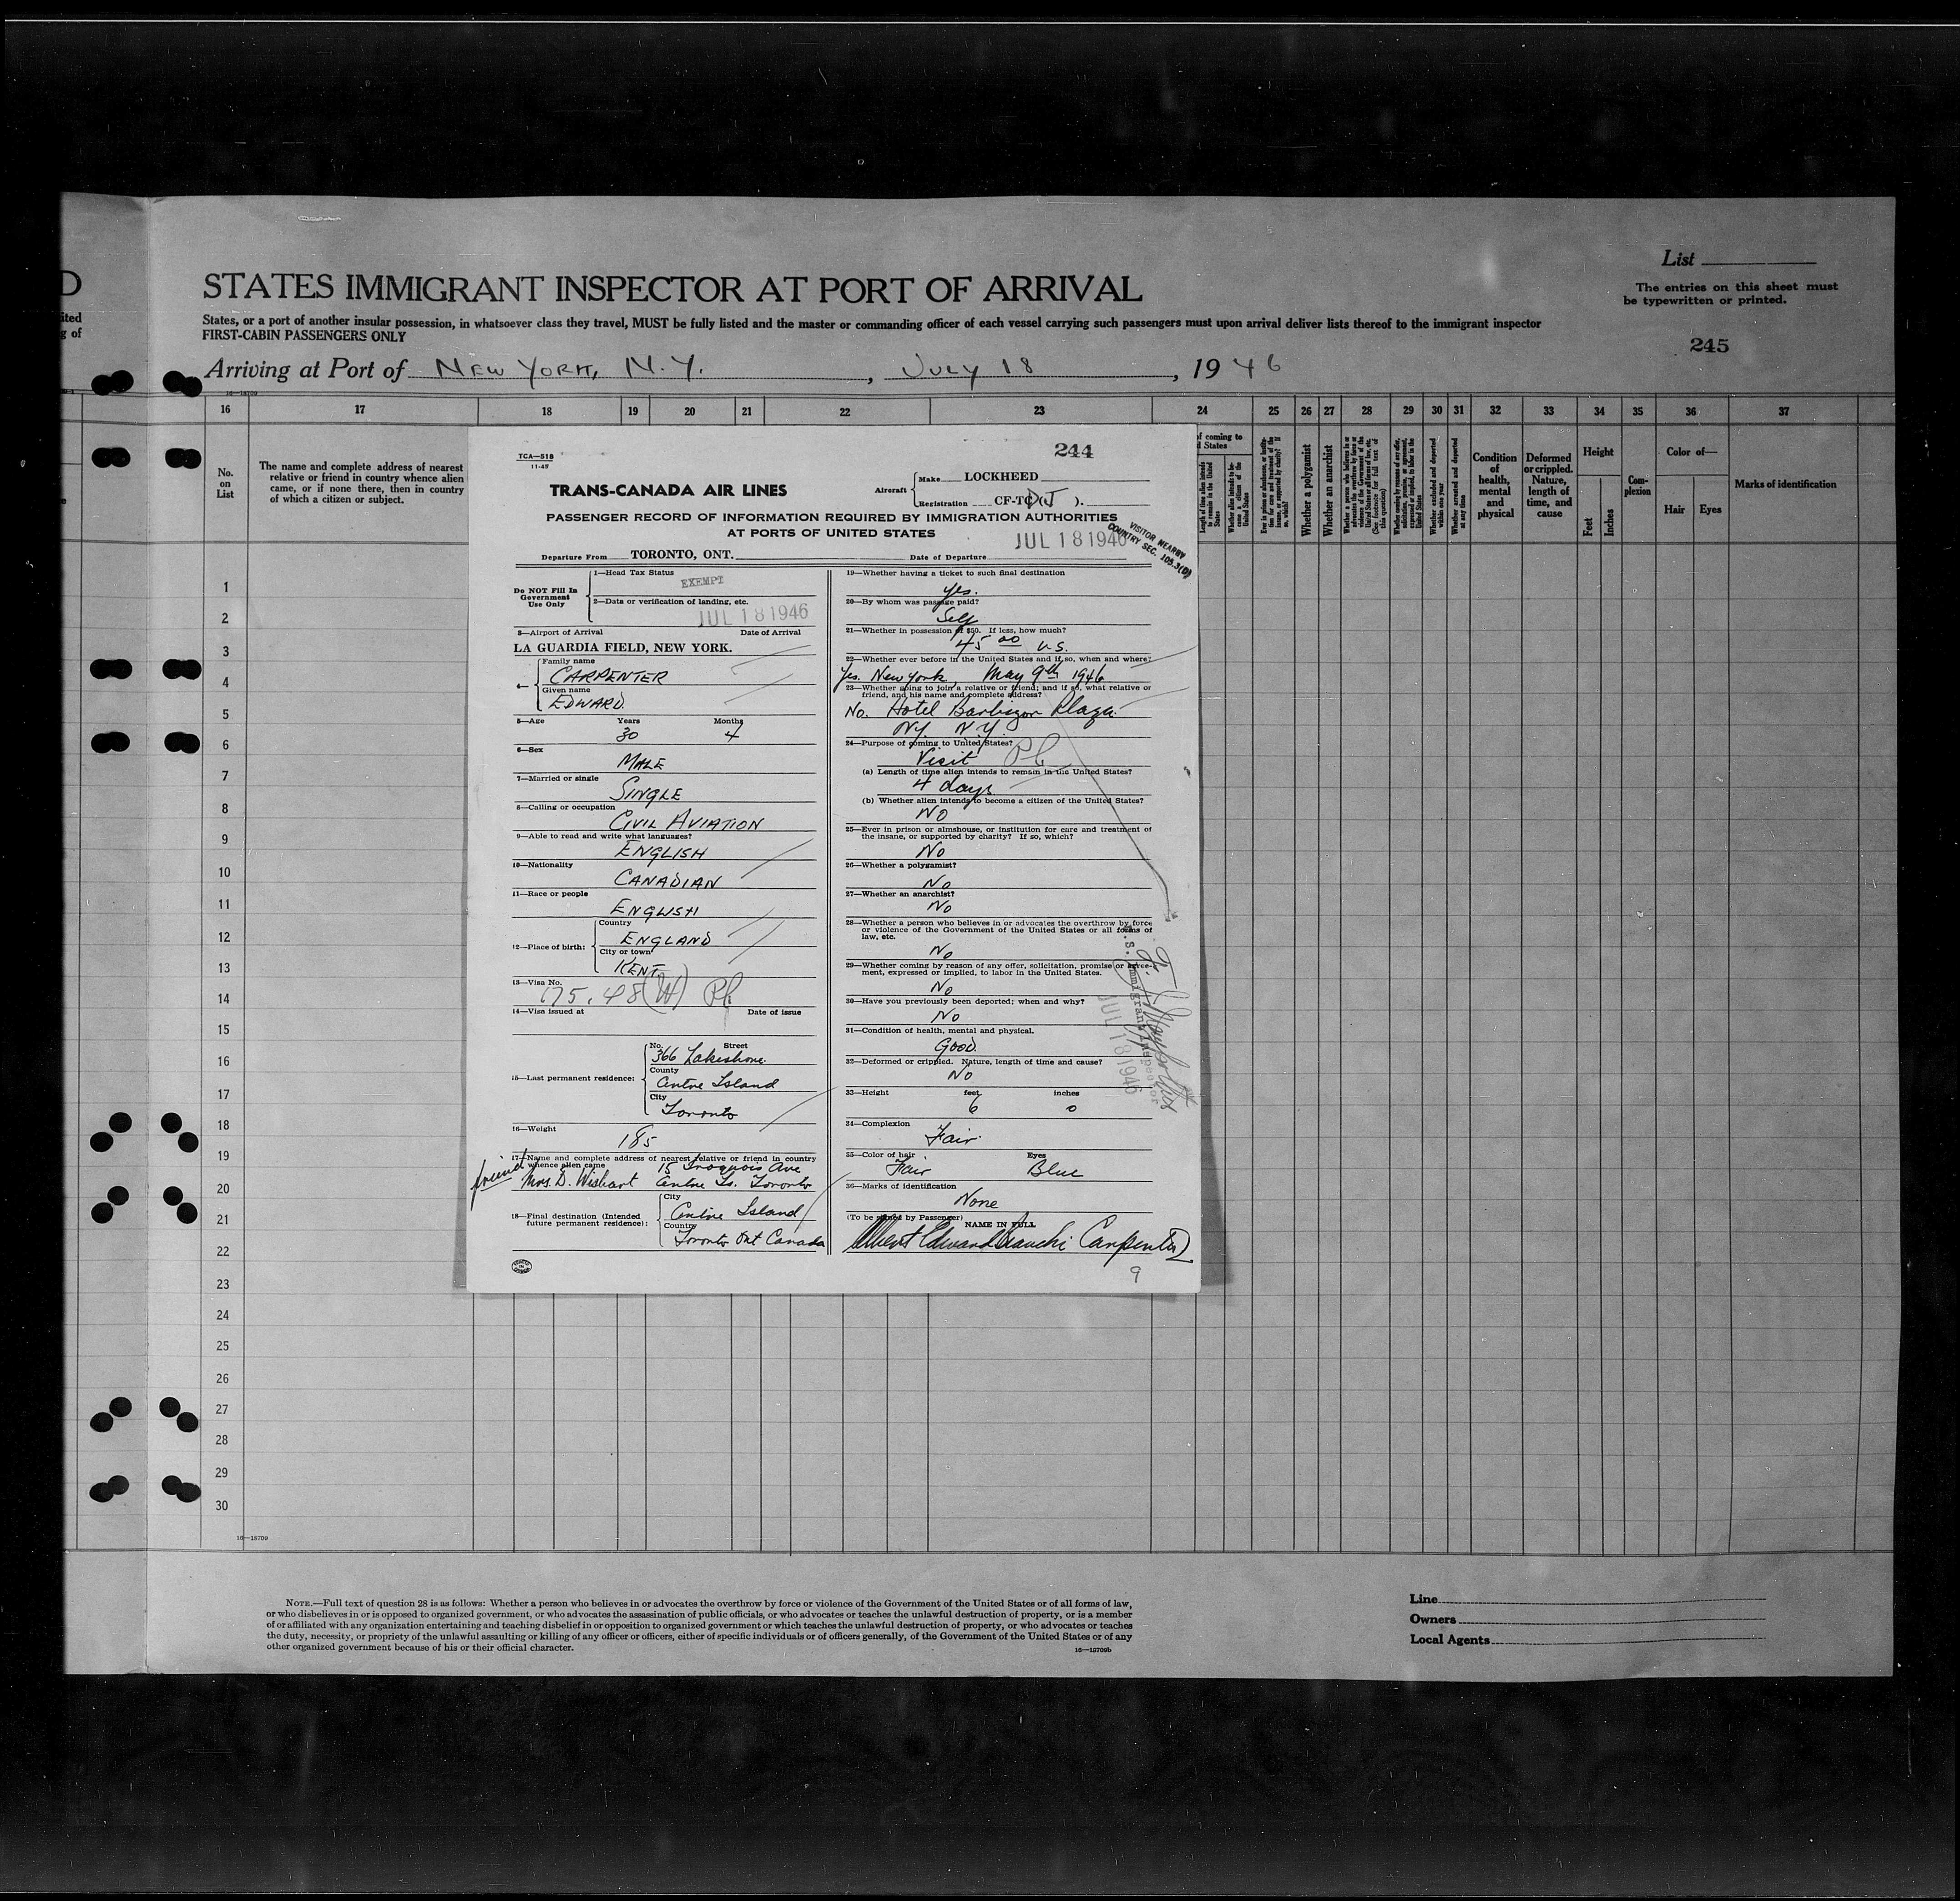 D
STATES IMMIGRANT INSPECTOR AT PORT OF ARRIVAL
List
The entries on this sheet must
be typewritten or printed.
ited
g of
States, or a port of another insular possession, in whatsoever class they travel, MUST be fully listed and the master or commanding officer of each vessel carrying such passengers must upon arrival deliver lists thereof to the immigrant inspector
FIRST-CABIN PASSENGERS ONLY
245
Arriving at Port of NEW YORK, N.Y., JULY 18, 1946
16—18709
16 17 18 19 20 21 22 23 24 25 26 27 28 29 30 31 32 33 34 35 36 37
No.
on
List
The name and complete address of nearest
relative or friend in country whence alien
came, or if none there, then in country
of which a citizen or subject.
of coming to
d States
Length of time alien intends
to remain in the United
States
Whether alien intends to be-
come a citizen of the
United States
Whether a polygamist
Whether an anarchist
Whether excluded and deported
within one year
Whether arrested and deported
at any time
Condition
of
health,
mental
and
physical
Deformed
or crippled.
Nature,
length of
time, and
cause
Height
Feet
Inches
Com-
plexion
Color of—
Hair Eyes
Marks of identification
244
TCA—518
11-45
TRANS-CANADA AIR LINES
Aircraft
Make LOCKHEED
Registration CF-TC(J ).
PASSENGER RECORD OF INFORMATION REQUIRED BY IMMIGRATION AUTHORITIES
AT PORTS OF UNITED STATES
VISITOR NEARBY
COUNTRY SEC. 105.3(D)
Departure From TORONTO, ONT. Date of Departure JUL 18 1946
Do NOT Fill In
Government
Use Only
1—Head Tax Status
EXEMPT
2—Data or verification of landing, etc.
JUL 18 1946
3—Airport of Arrival Date of Arrival
LA GUARDIA FIELD, NEW YORK.
4—
Family name
CARPENTER
Given name
EDWARD.
5—Age Years Months
30 4
6—Sex
MALE
7—Married or single
SINGLE
8—Calling or occupation
CIVIL AVIATION
9—Able to read and write what languages?
ENGLISH
10—Nationality
CANADIAN
11—Race or people
ENGLISH
12—Place of birth:
Country
ENGLAND
City or town
KENT
13—Visa No.
175.48(W)
14—Visa issued at Date of issue
15—Last permanent residence:
No. Street
366 Lakeshore.
County
Centre Island
City
Toronto
16—Weight
185
17—Name and complete address of nearest relative or friend in country
whence alien came 15 Iroquois Ave
friend Mrs. D. Wishart Centre Is. Toronto
18—Final destination (Intended
future permanent residence):
City
Centre Island
Country
Toronto Ont Canada
19—Whether having a ticket to such final destination
Yes.
20—By whom was passage paid?
Self
21—Whether in possession of $50. If less, how much?
45 00 U.S.
22—Whether ever before in the United States and if so, when and where?
Yes. New York, May 9th 1946
23—Whether going to join a relative or friend; and if so, what relative or
friend, and his name and complete address?
No. Hotel Barbizon Plaza.
N.Y. N.Y.
24—Purpose of coming to United States?
Visit
(a) Length of time alien intends to remain in the United States?
4 days
(b) Whether alien intends to become a citizen of the United States?
NO
25—Ever in prison or almshouse, or institution for care and treatment of
the insane, or supported by charity? If so, which?
No
26—Whether a polygamist?
No
27—Whether an anarchist?
No
28—Whether a person who believes in or advocates the overthrow by force
or violence of the Government of the United States or all forms of
law, etc.
No
29—Whether coming by reason of any offer, solicitation, promise or agree-
ment, expressed or implied, to labor in the United States.
No
30—Have you previously been deported; when and why?
No
31—Condition of health, mental and physical.
Good.
32—Deformed or crippled. Nature, length of time and cause?
No
33—Height feet inches
6 0
34—Complexion
Fair.
35—Color of hair Eyes
Fair Blue
36—Marks of identification
None
(To be signed by Passenger) NAME IN FULL
Albert Edward Bianchi Carpenter
9
U.S. Immigrant Inspector
JUL 18 1946
1
2
3
4
5
6
7
8
9
10
11
12
13
14
15
16
17
18
19
20
21
22
23
24
25
26
27
28
29
30
16—18709
NOTE.—Full text of question 28 is as follows: Whether a person who believes in or advocates the overthrow by force or violence of the Government of the United States or of all forms of law,
or who disbelieves in or is opposed to organized government, or who advocates the assassination of public officials, or who advocates or teaches the unlawful destruction of property, or is a member
of or affiliated with any organization entertaining and teaching disbelief in or opposition to organized government or which teaches the unlawful destruction of property, or who advocates or teaches
the duty, necessity, or propriety of the unlawful assaulting or killing of any officer or officers, either of specific individuals or of officers generally, of the Government of the United States or of any
other organized government because of his or their official character.
16—18709b
Line
Owners
Local Agents